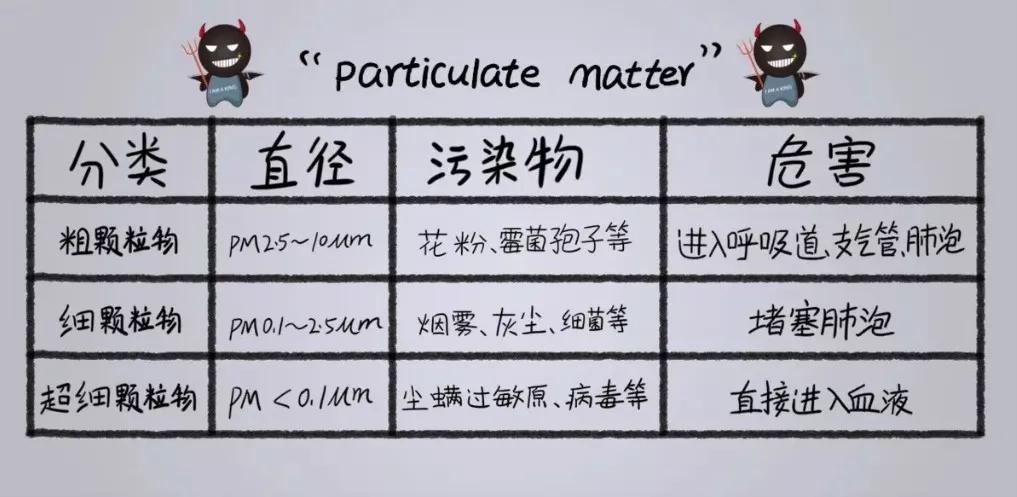 “particulate matter”
I AM A KING.
I AM A KING.
分类 直径 污染物 危害
粗颗粒物 PM2.5~10um 花粉、霉菌孢子等 进入呼吸道、支气管、肺泡
细颗粒物 PM0.1~2.5um 烟雾、灰尘、细菌等 堵塞肺泡
超细颗粒物 PM<0.1um 尘螨过敏原、病毒等 直接进入血液